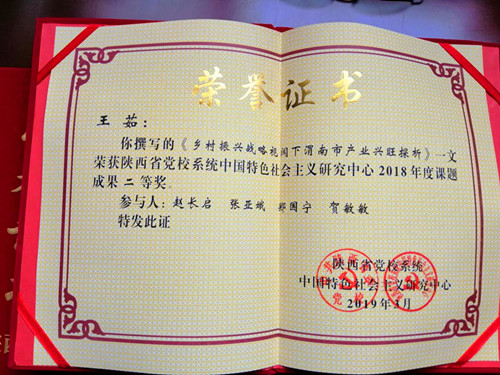 荣誉证书
王茹：
你撰写的《乡村振兴战略视阈下渭南市产业兴旺探析》一文
荣获陕西省党校系统中国特色社会主义研究中心2018年度课题
成果二等奖。
参与人：赵长启 张亚娥 郭国宁 贺敏敏
特发此证
陕西省党校系统
中国特色社会主义研究中心
2019年3月